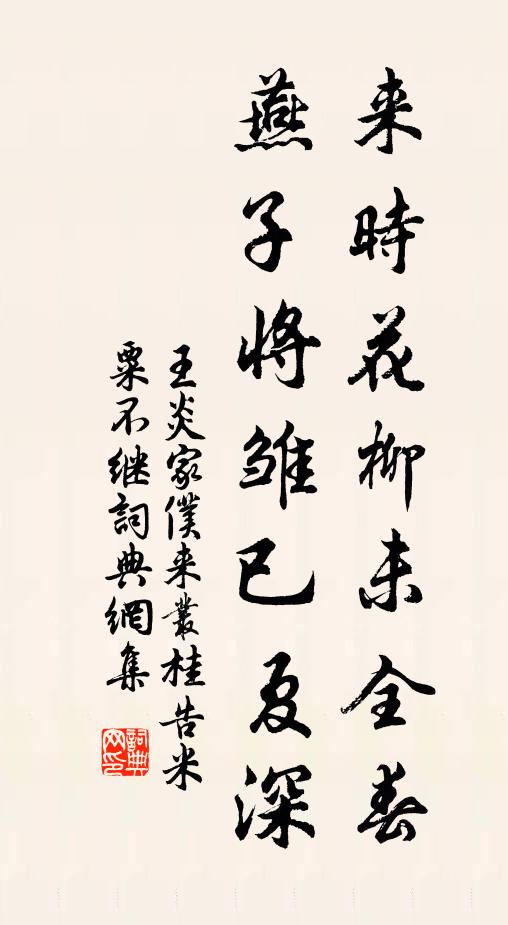 来時花柳未全春
燕子将雏已夏深
王炎家僕来叢桂告米
粟不继詞典網集
詞典网印